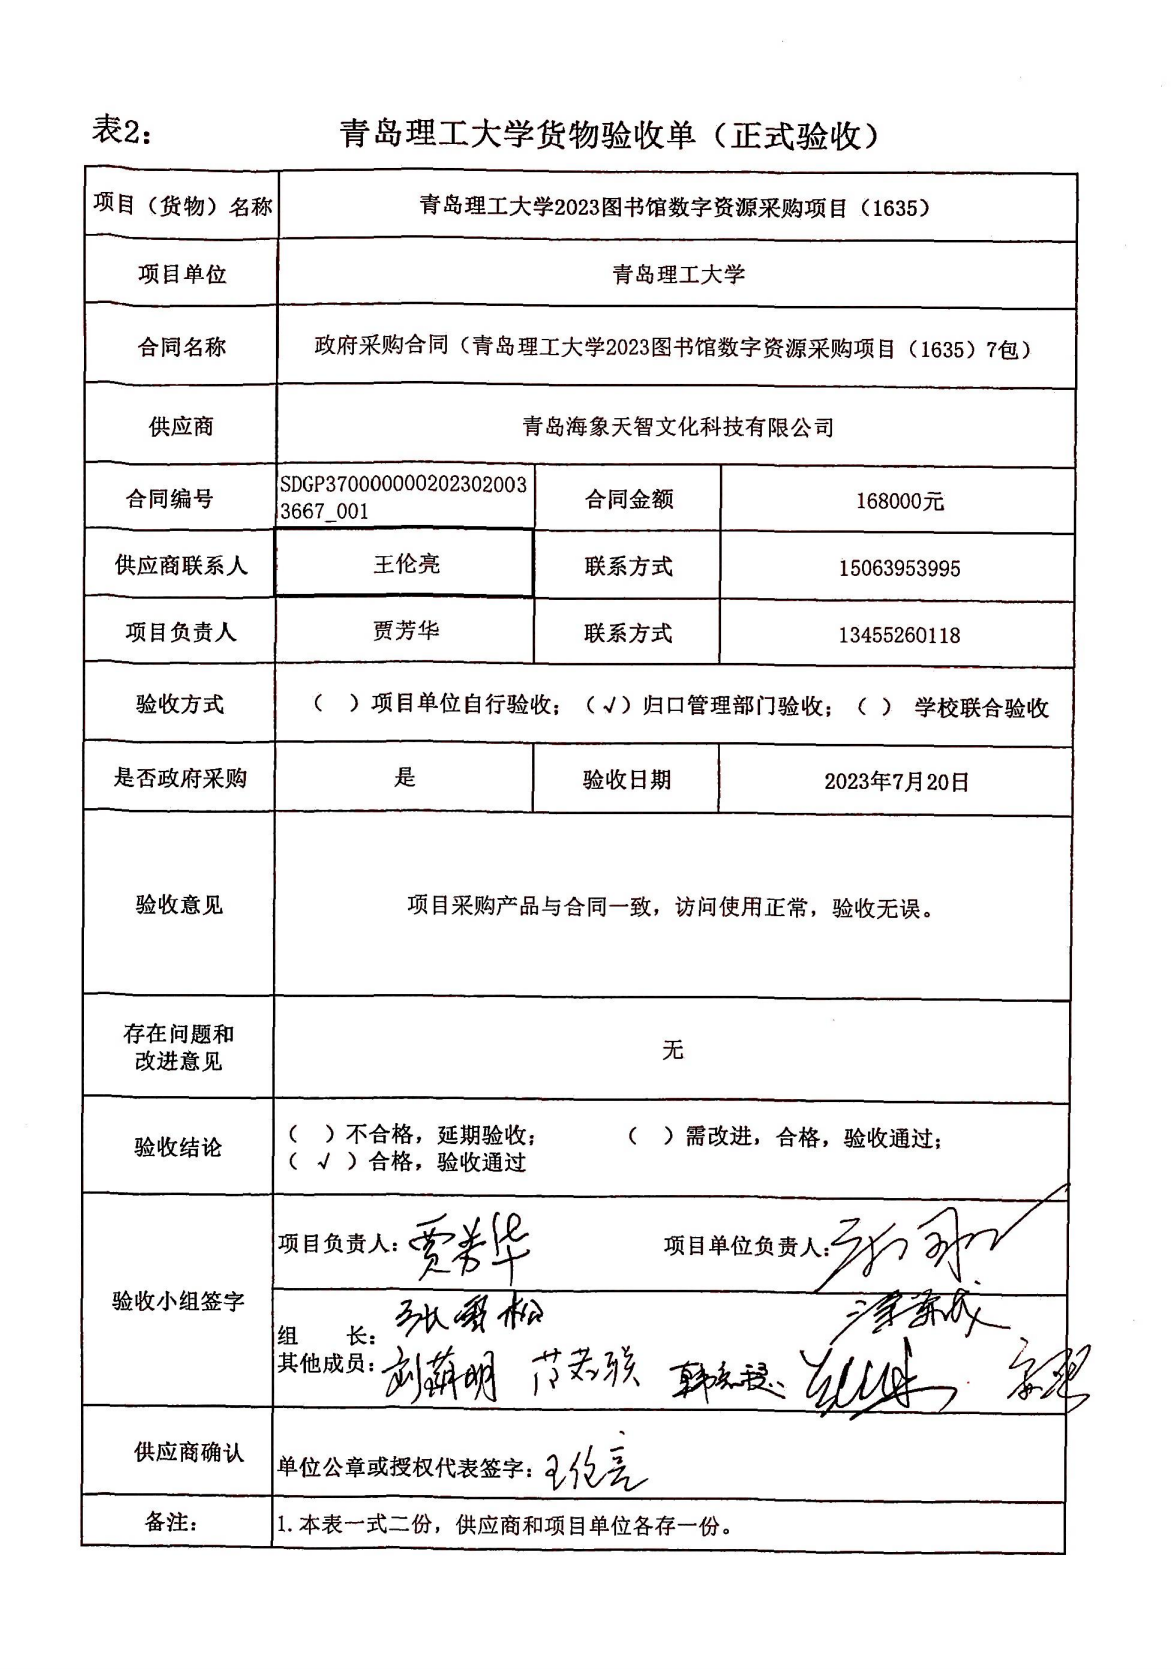 表2：
青岛理工大学货物验收单（正式验收）
项目（货物）名称 青岛理工大学2023图书馆数字资源采购项目（1635）
项目单位 青岛理工大学
合同名称 政府采购合同（青岛理工大学2023图书馆数字资源采购项目（1635）7包）
供应商 青岛海象天智文化科技有限公司
合同编号 SDGP370000000202302003
3667_001
合同金额 168000元
供应商联系人 王伦亮 联系方式 15063953995
项目负责人 贾芳华 联系方式 13455260118
验收方式 （ ）项目单位自行验收；（√）归口管理部门验收；（ ） 学校联合验收
是否政府采购 是 验收日期 2023年7月20日
验收意见 项目采购产品与合同一致，访问使用正常，验收无误。
存在问题和
改进意见
无
验收结论
（ ）不合格，延期验收； （ ）需改进，合格，验收通过；
（ √ ）合格，验收通过
验收小组签字
项目负责人：贾芳华 项目单位负责人：
组 长：张雪松
其他成员：
供应商确认 单位公章或授权代表签字：王伦亮
备注： 1.本表一式二份，供应商和项目单位各存一份。